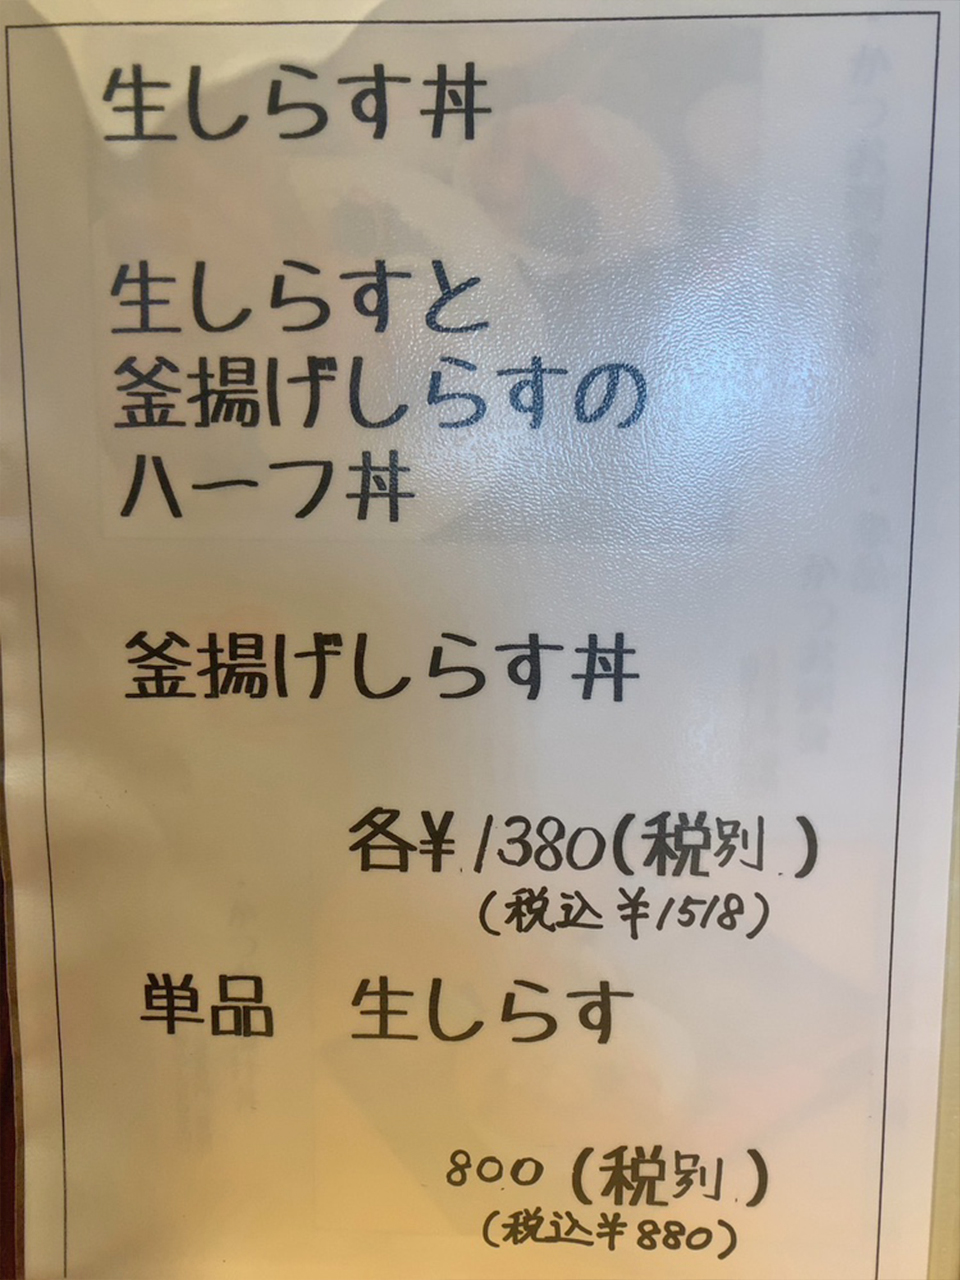 生しらす丼
生しらすと
釜揚げしらすの
ハーフ丼
釜揚げしらす丼
各¥1380(税別)
(税込¥1518)
単品 生しらす
800(税別)
(税込¥880)